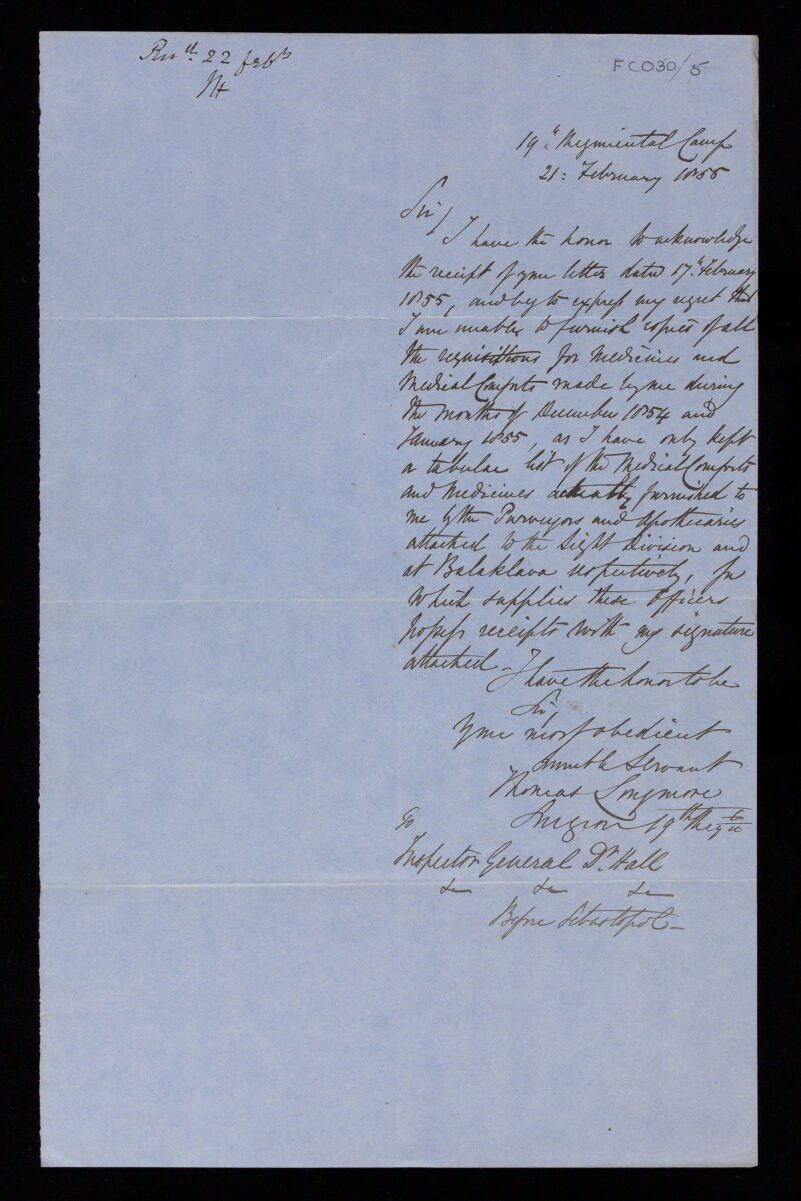 Recd. 22 Feby
FCO30/5
19th Regimental Camp
21: February 1855
Sir/
I have the honor to acknowledge
the receipt of your letter dated 17th February
1855, and beg to express my regret that
I am unable to furnish copies of all
the requisitions for Medicines and
Medical Comforts made by me during
the months of December 1854 and
January 1855, as I have only kept
a tabular list of the Medical Comforts
and Medicines actually furnished to
me by the Purveyors and Apothecaries
attached to the Light Division and
at Balaklava respectively, for
which supplies these Officers
possess receipts with my signature
attached.
I have the honor to be
Sir,
Your most obedient
humble Servant
Thomas Longmore
Surgeon 19th Regt
To
Inspector General Dr. Hall
&c &c &c
Before Sebastopol